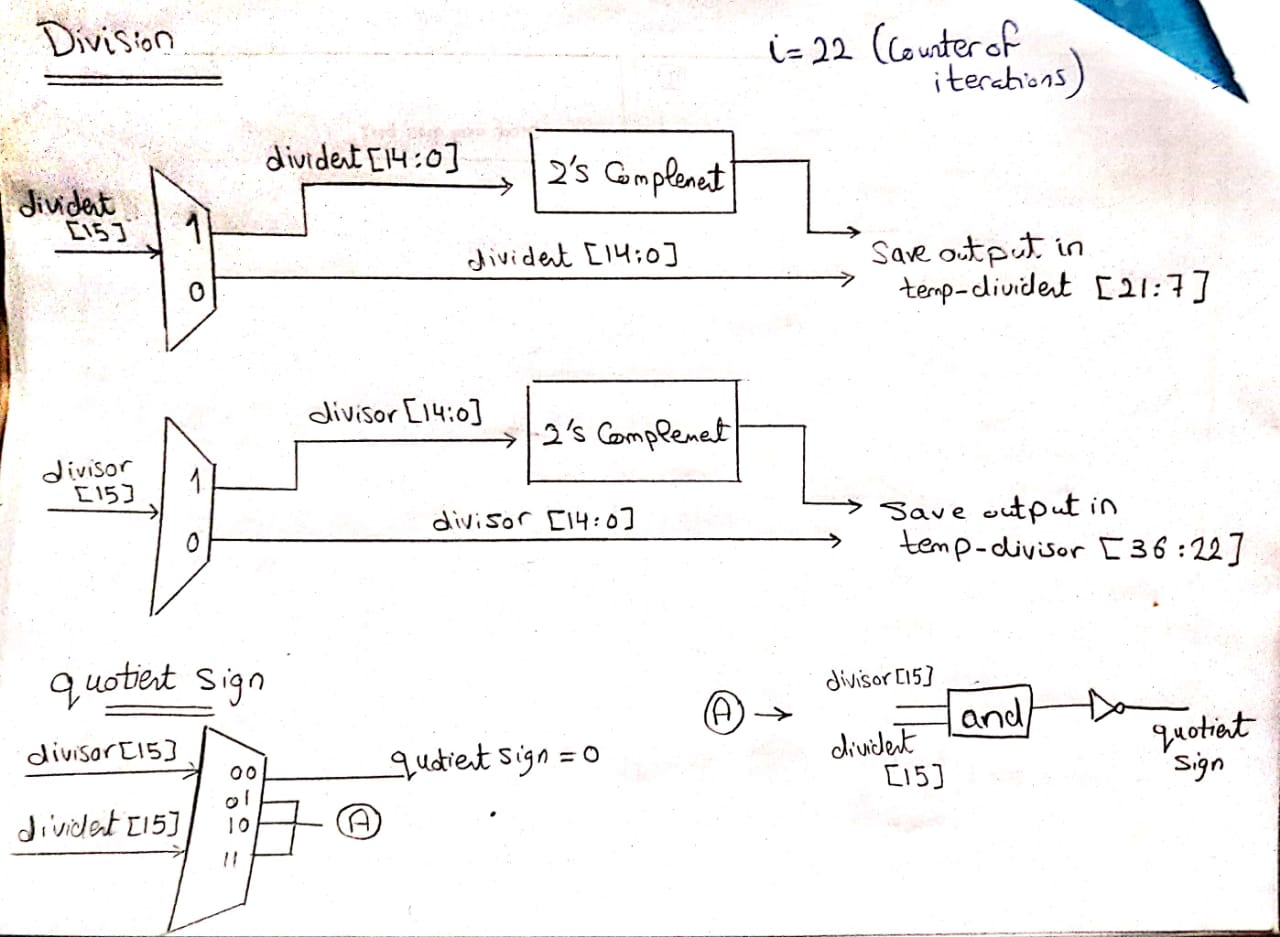 Division
i=22 (Counter of
iterations)
divident [14:0]
2's Complement
divident
[15]
1
divident [14:0]
0
Save output in
temp-divident [21:7]
divisor [14:0]
2's Complement
divisor
[15]
1
divisor [14:0]
0
Save output in
temp-divisor [36:22]
quotient Sign
divisor [15]
00
quotient Sign = 0
01
divident [15]
10
A
11
A
divisor [15]
and
divident
[15]
quotient
Sign